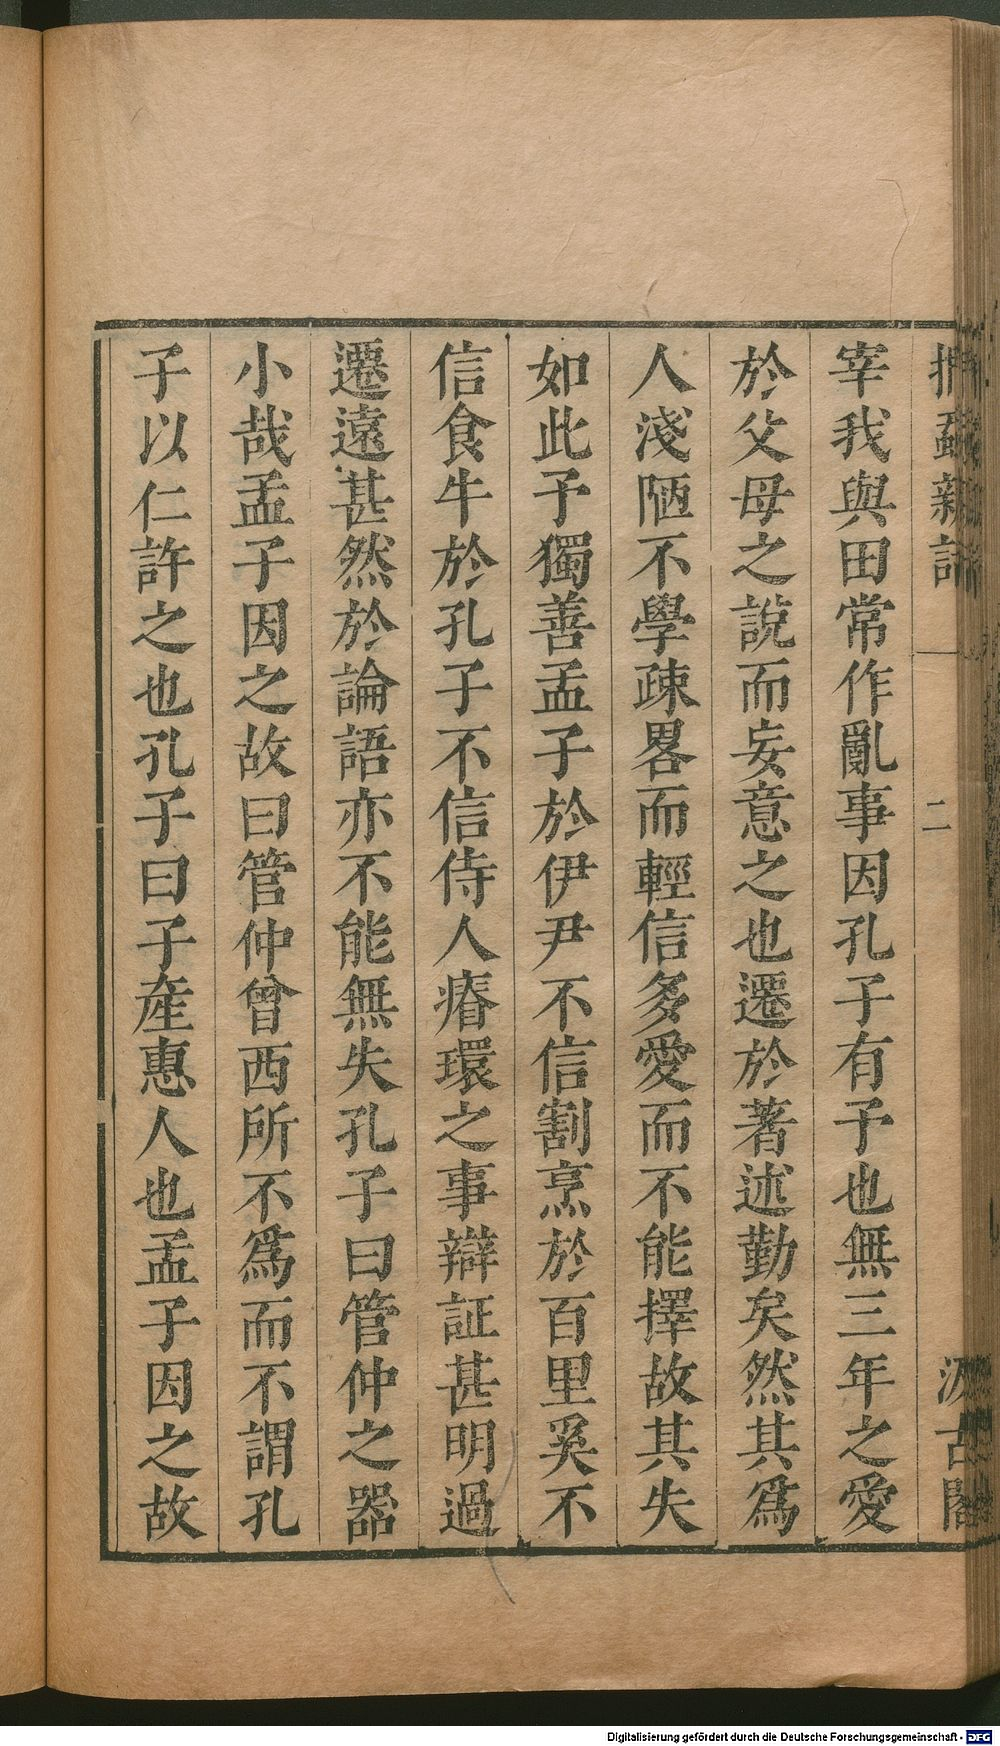 捫蝨新話
二
汲古閣
宰我與田常作亂事因孔子有予也無三年之愛
於父母之說而妄意之也遷於著述勤矣然其爲
人淺陋不學疎畧而輕信多愛而不能擇故其失
如此予獨善孟子於伊尹不信割烹於百里奚不
信食牛於孔子不信侍人瘠環之事辯証甚明過
遷遠甚然於論語亦不能無失孔子曰管仲之器
小哉孟子因之故曰管仲曾西所不爲而不謂孔
子以仁許之也孔子曰子產惠人也孟子因之故
Digitalisierung gefördert durch die Deutsche Forschungsgemeinschaft - DFG